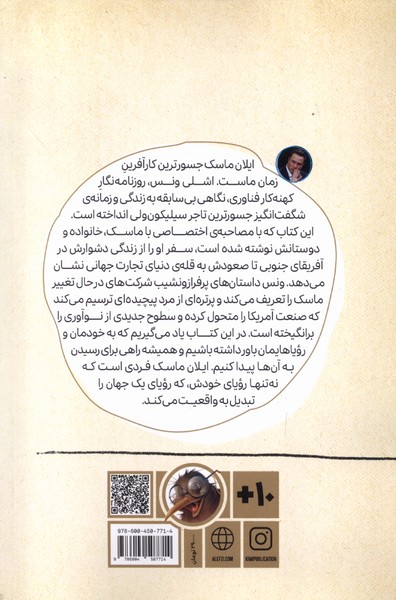 ایلان ماسک جسورترین کارآفرین
زمان ماست. اشلی ونس، روزنامه‌نگار
کهنه‌کار فناوری، نگاهی بی‌سابقه به زندگی و زمانه‌ی
شگفت‌انگیز جسورترین تاجر سیلیکون‌ولی انداخته است.
این کتاب که با مصاحبه‌ی اختصاصی با ماسک، خانواده و
دوستانش نوشته شده است، سفر او را از زندگی دشوارش در
آفریقای جنوبی تا صعودش به قله‌ی دنیای تجارت جهانی نشان
می‌دهد. ونس داستان‌های پرفرازونشیب شرکت‌های در حال تغییر
ماسک را تعریف می‌کند و پرتره‌ای از مرد پیچیده‌ای ترسیم می‌کند
که صنعت آمریکا را متحول کرده و سطوح جدیدی از نوآوری را
برانگیخته است. در این کتاب یاد می‌گیریم که به خودمان و
رؤیاهایمان باور داشته باشیم و همیشه راهی برای رسیدن
به آن‌ها پیدا کنیم. ایلان ماسک فردی است که
نه‌تنها رؤیای خودش، که رؤیای یک جهان را
تبدیل به واقعیت می‌کند.
+۱۰
978-600-450-771-4
9 786004 507714
تومان
ALEFD.COM